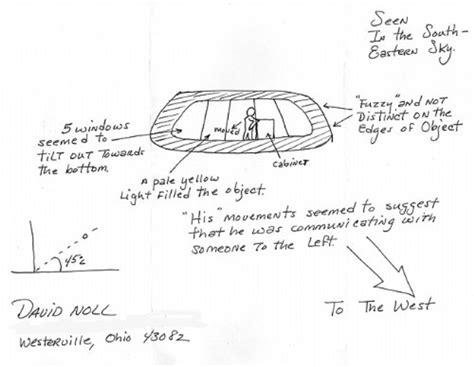 Seen
In the South-
Eastern Sky.
"Fuzzy" and not
Distinct on the
Edges of Object
5 windows
seemed to
tilt out towards
the bottom.
moved
cabinet
A pale yellow
Light filled the object.
"His" movements seemed to suggest
that he was communicating with
someone to the Left.
45°
To The West
David Noll
Westerville, Ohio 43082